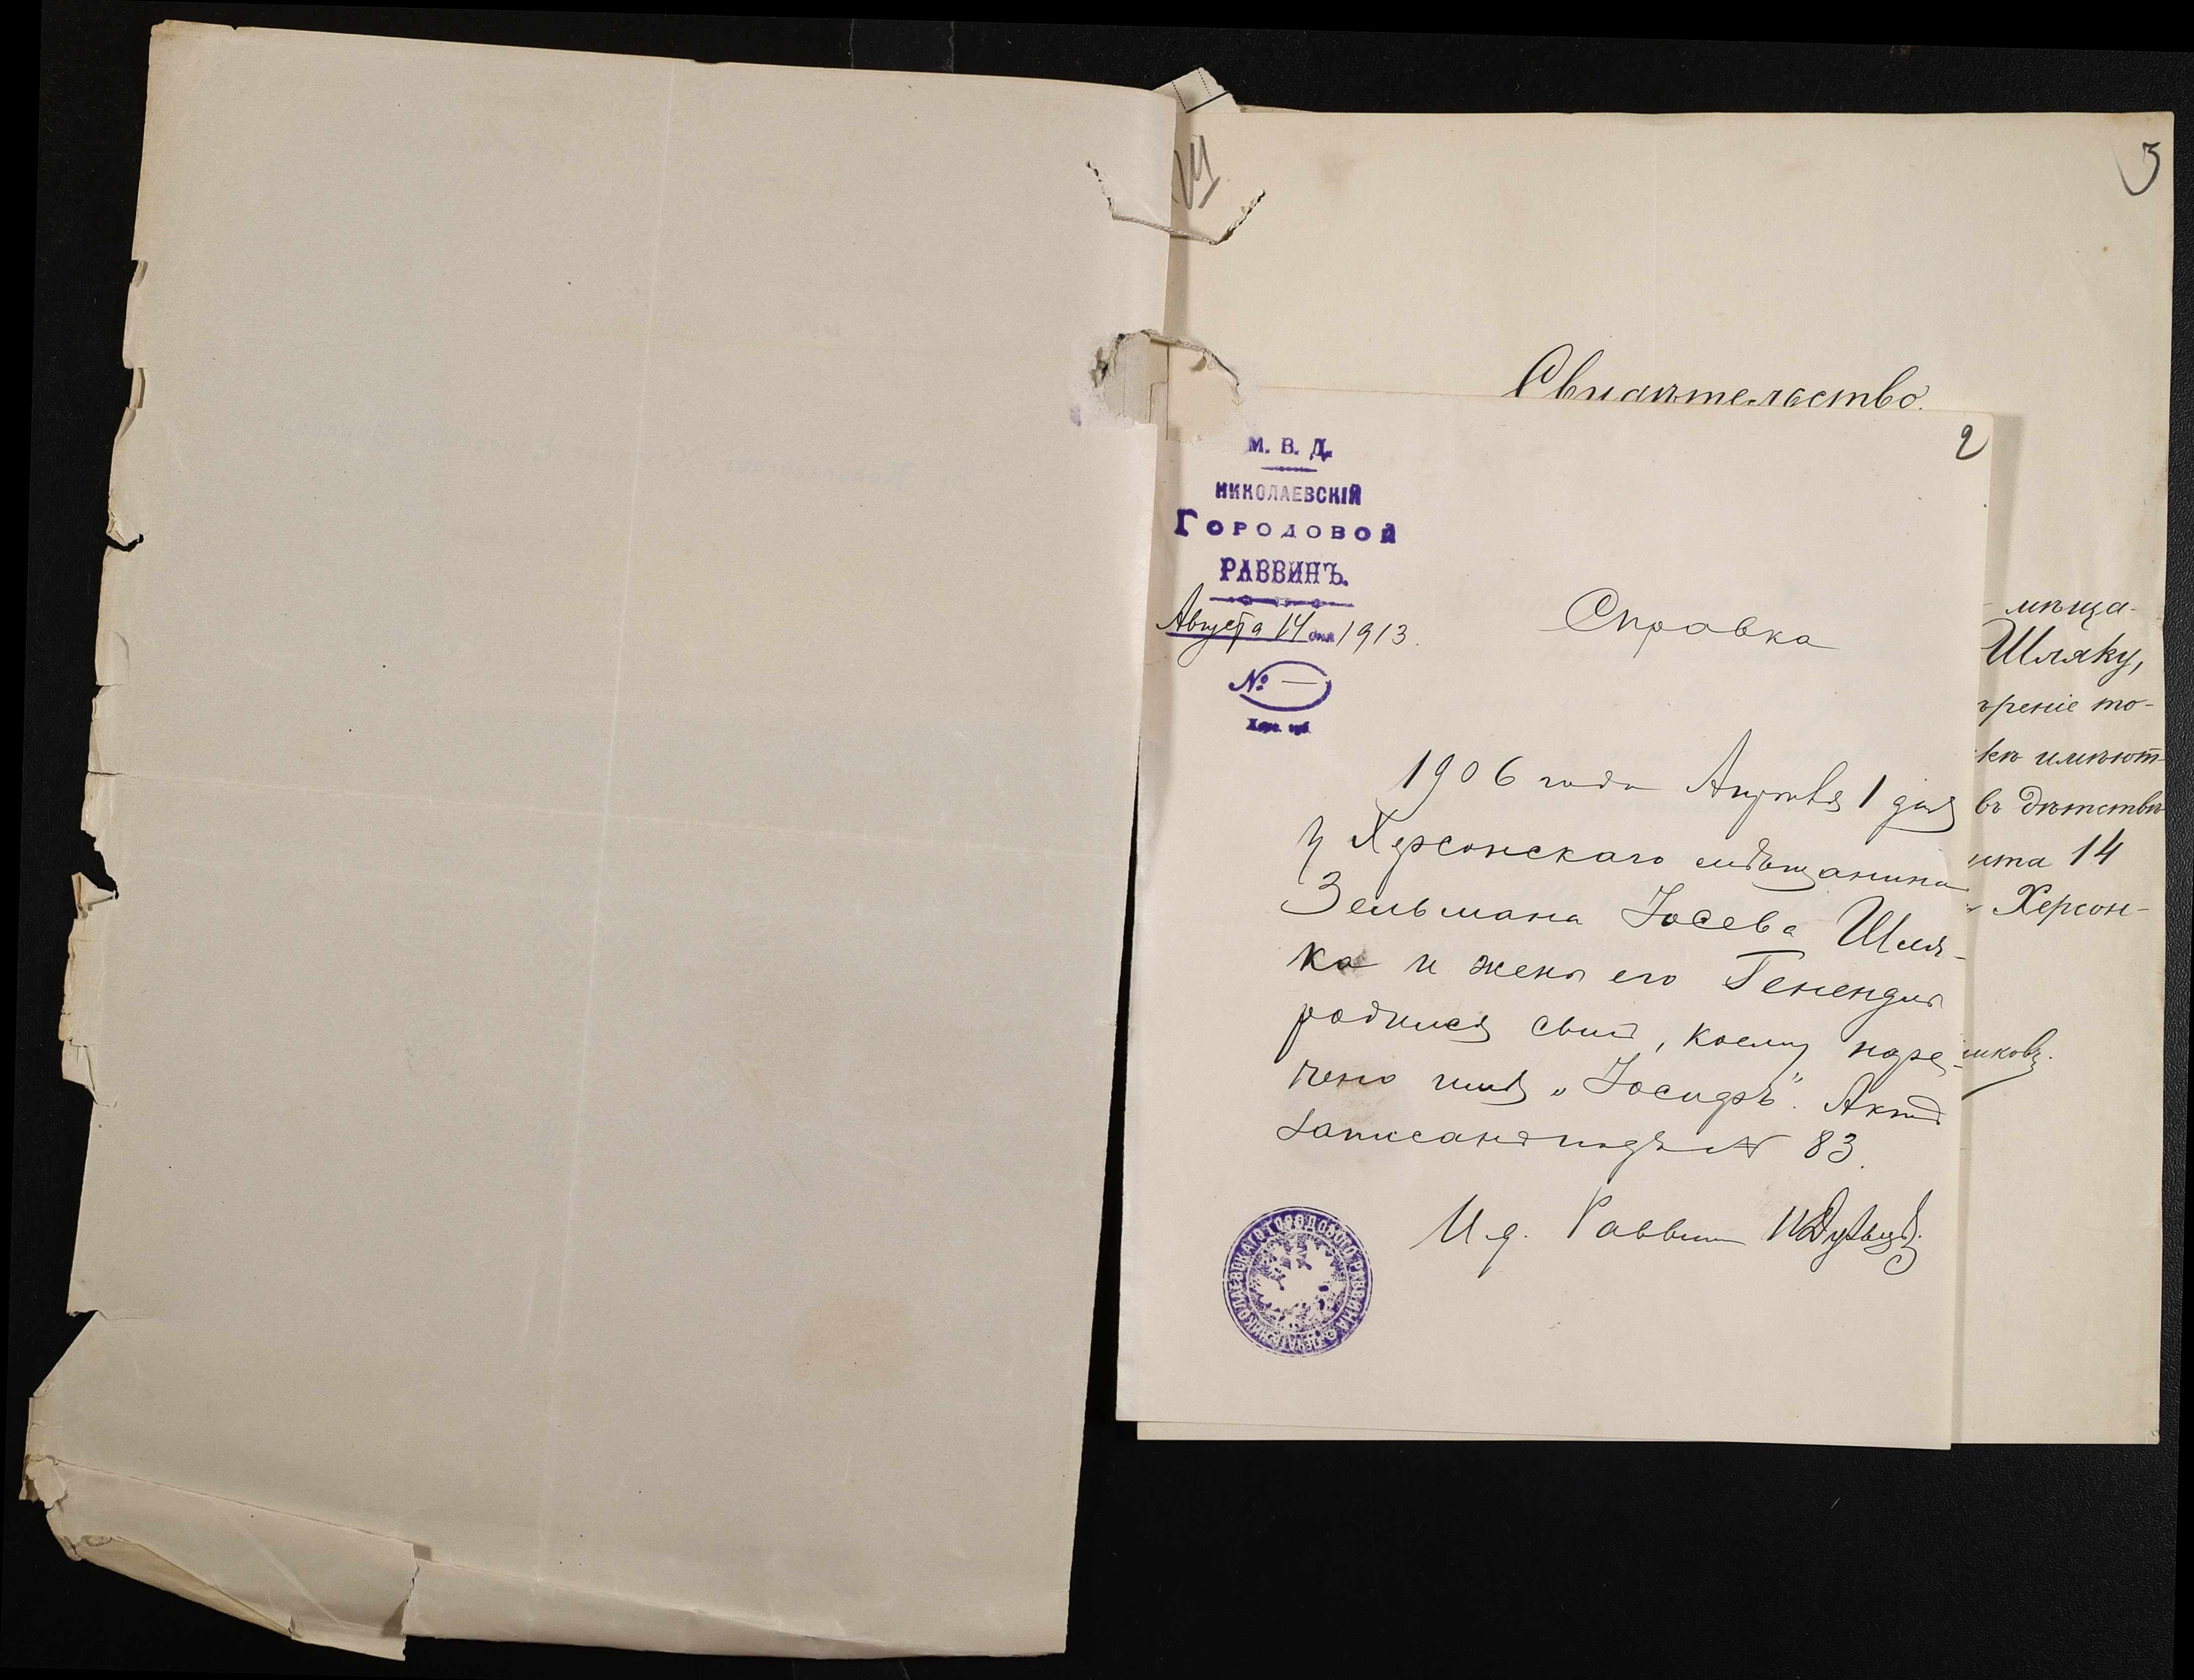 3
Свидѣтельство.
2
М. В. Д.
НИКОЛАЕВСКІЙ
ГОРОДОВОЙ
РАВВИНЪ.
Августа 14 дня 1913.
№ —
Херс. губ.
Справка
1906 года Апрѣля 1 дня
у Херсонскаго мѣщанина
Зельмана Іосева Шля-
ка и жены его Гененди
родился сынъ, коему наре-
чено имя „Іосифъ". Актъ
записанъ подъ № 83.
И. д. Раввина
НИКОЛАЕВСКАГО ГОРОДОВОГО РАВВИНА ПЕЧАТЬ
мѣща-
Шляку,
ѣреніе то-
къ имѣют-
въ дѣтствѣ
ита 14
Херсон-
иковъ.